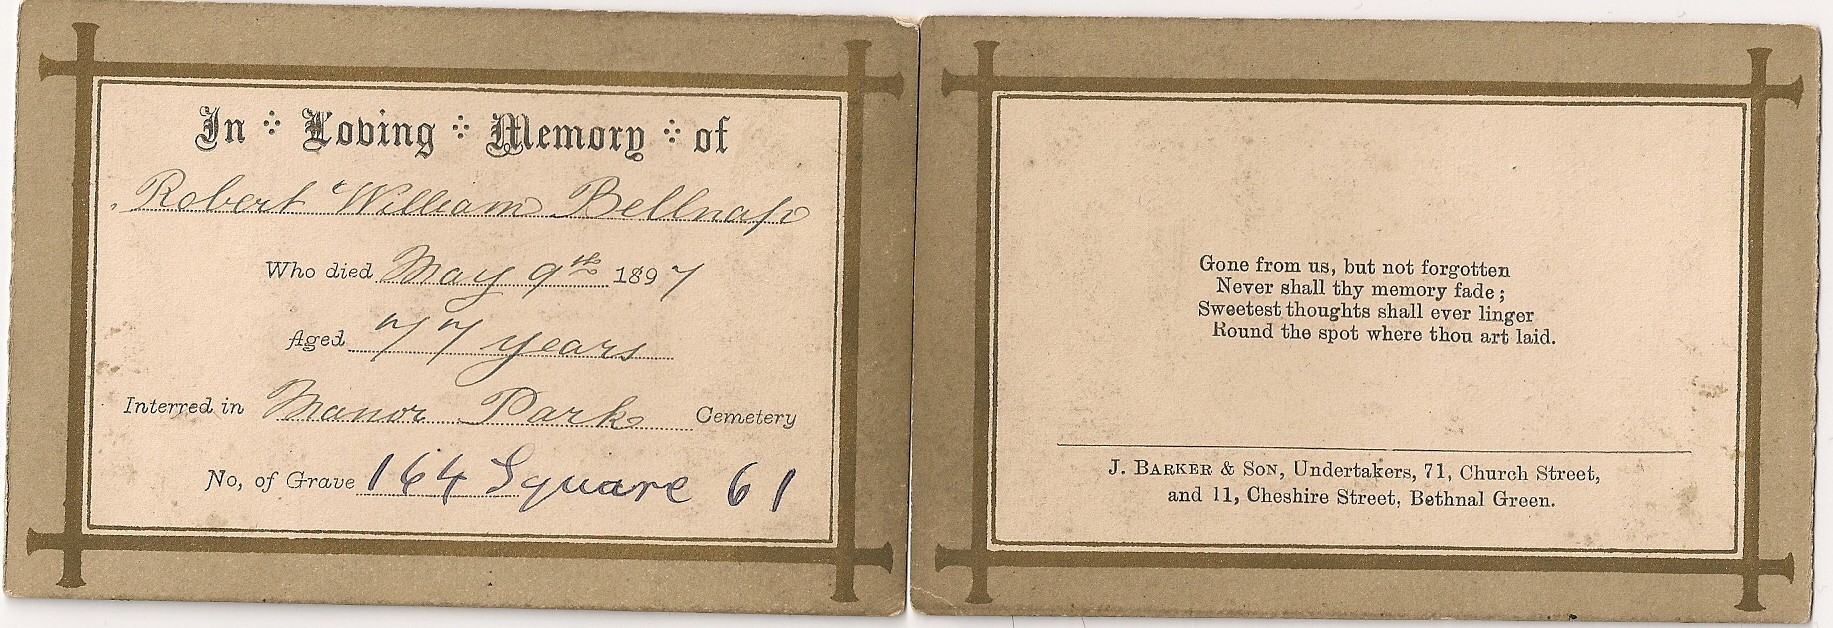 In Loving Memory of
Robert William Bellnap
Who died May 9th 1897
Aged 77 years
Interred in Manor Park Cemetery
No, of Grave 164 Square 61
Gone from us, but not forgotten
Never shall thy memory fade;
Sweetest thoughts shall ever linger
Round the spot where thou art laid.
J. BARKER & SON, Undertakers, 71, Church Street,
and 11, Cheshire Street, Bethnal Green.